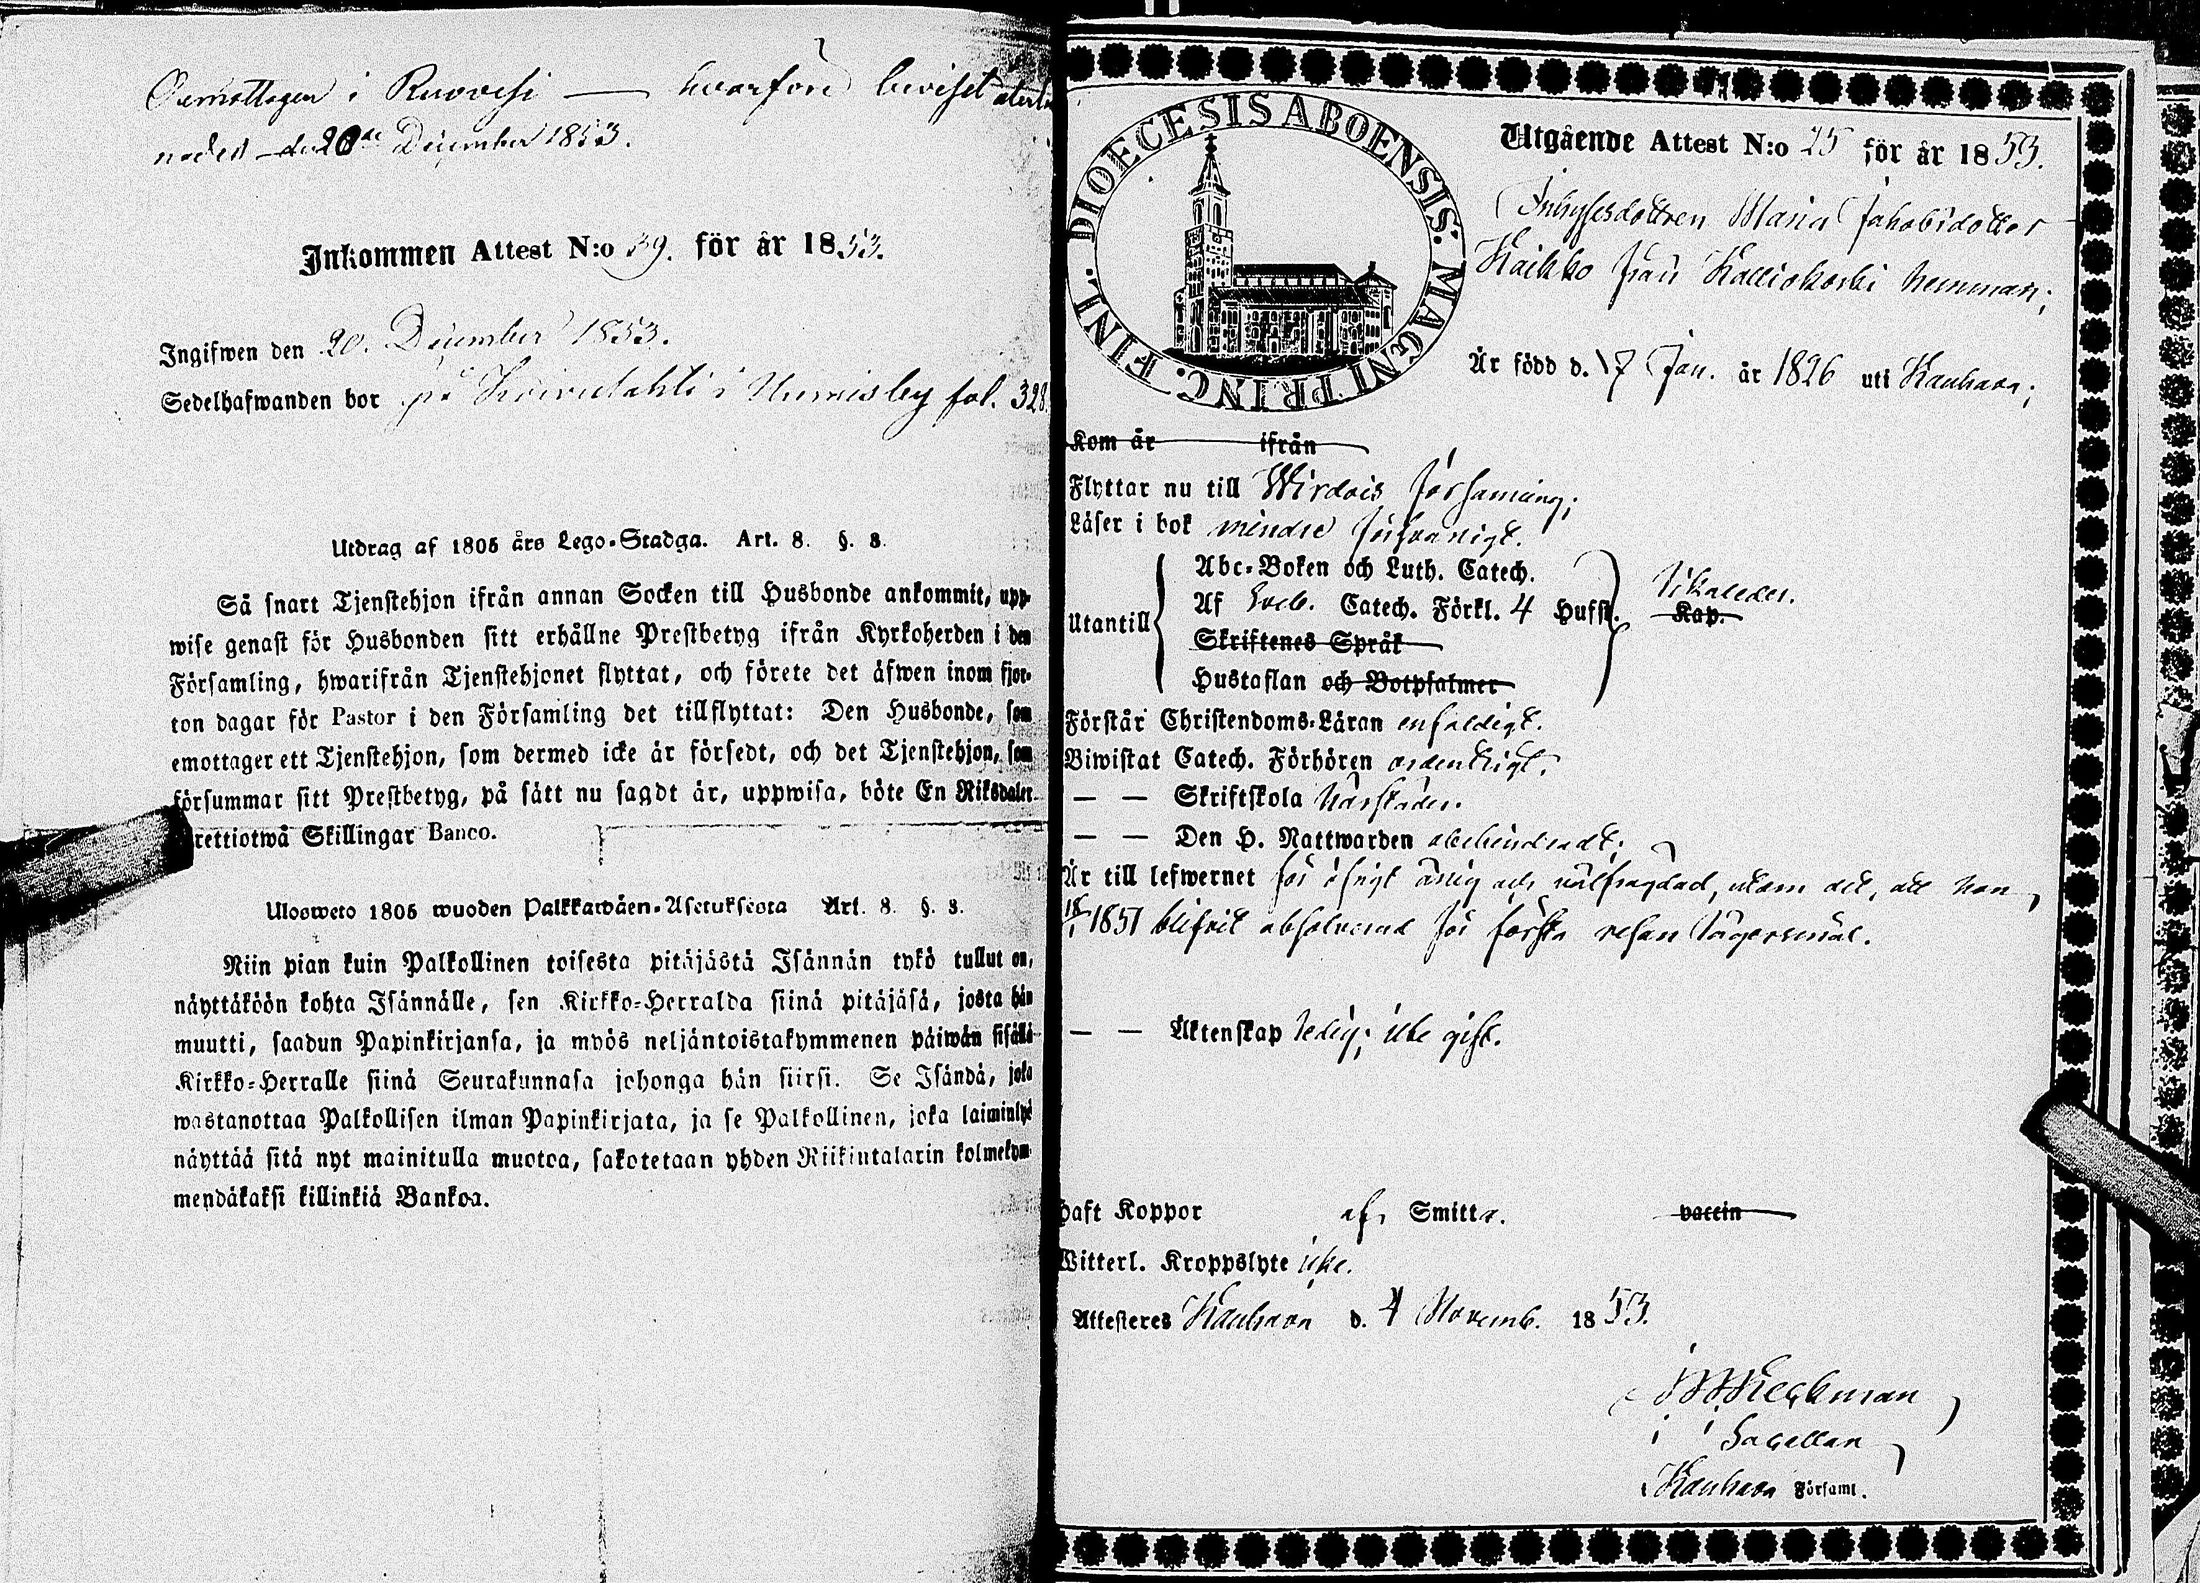 Oemottagen i Ruovesi — hvarföre beviset återläm
nades den 20de December 1853.
Inkommen Attest N:o 39. för år 1853.
Ingifwen den 20. December 1853.
Sedelhafwanden bor på Koivulahti i Visuvesi by fol. 328.
Utdrag af 1805 års Lego-Stadga. Art. 8. §. 8.
Så snart Tjenstehjon ifrån annan Socken till Husbonde ankommit, upp-
wise genast för Husbonden sitt erhållne Prestbetyg ifrån Kyrkoherden i den
Församling, hwarifrån Tjenstehjonet flyttat, och förete det äfwen inom fjor-
ton dagar för Pastor i den Församling det tillflyttat: Den Husbonde, som
emottager ett Tjenstehjon, som dermed icke är försedt, och det Tjenstehjon, som
försummar sitt Prestbetyg, på sätt nu sagdt är, uppwisa, böte En Riksdaler
trettiotwå Skillingar Banco.
Ulosweto 1805 wuoden Palkkawäen-Asetuksesta Art. 8. §. 8.
Niin pian kuin Palkollinen toisesta pitäjästä Isännän tykö tullut on,
näyttäköön kohta Isännälle, sen Kirkko-Herralda siinä pitäjäsä, josta hän
muutti, saadun Papinkirjansa, ja myös neljäntoistakymmenen päiwän sisällä
Kirkko-Herralle siinä Seurakunnasa johonga hän siirsi. Se Isändä, joka
wastanottaa Palkollisen ilman Papinkirjata, ja se Palkollinen, joka laiminlyö
näyttää sitä nyt mainitulla muotoa, sakotetaan yhden Riikintalarin kolmekym-
mendäkaksi killinkiä Bankoa.
DIOECESIS ABOENSIS. MAGNI PRINC. FINL.
Utgående Attest N:o 25 för år 1853.
Inhysesdottren Maria Jakobsdotter
Kaikko från Kalliokoski hemman;
Är född d. 17 Jan. år 1826 uti Kauhava;
Kom år ifrån
Flyttar nu till Wirdois församling;
Läser i bok mindre försvarligt.
Abc-Boken och Luth. Catech.
Utantill Af Sveb. Catech. Förkl. 4 Hufst. Kap.
Skriftenes Språk
Hustaflan och Botpsalmer
Förstår Christendoms-Läran enfaldigt.
Biwistat Catech. Förhören ordentligt.
— — Skriftskola härstädes.
— — Den H. Nattwarden obehindradt;
Är till lefwernet för öfrigt ärlig och välfrägdad, utom det, att hon
1851 blifvit absolverad för första resan lägersmål.
— — Äktenskap ledig; icke gift.
Haft Koppor af Smitta. vaccin
Witterl. Kroppslyte icke.
Attesteres Kauhava d. 4 Novemb. 1853.
Sacellan
Kauhava Församl.